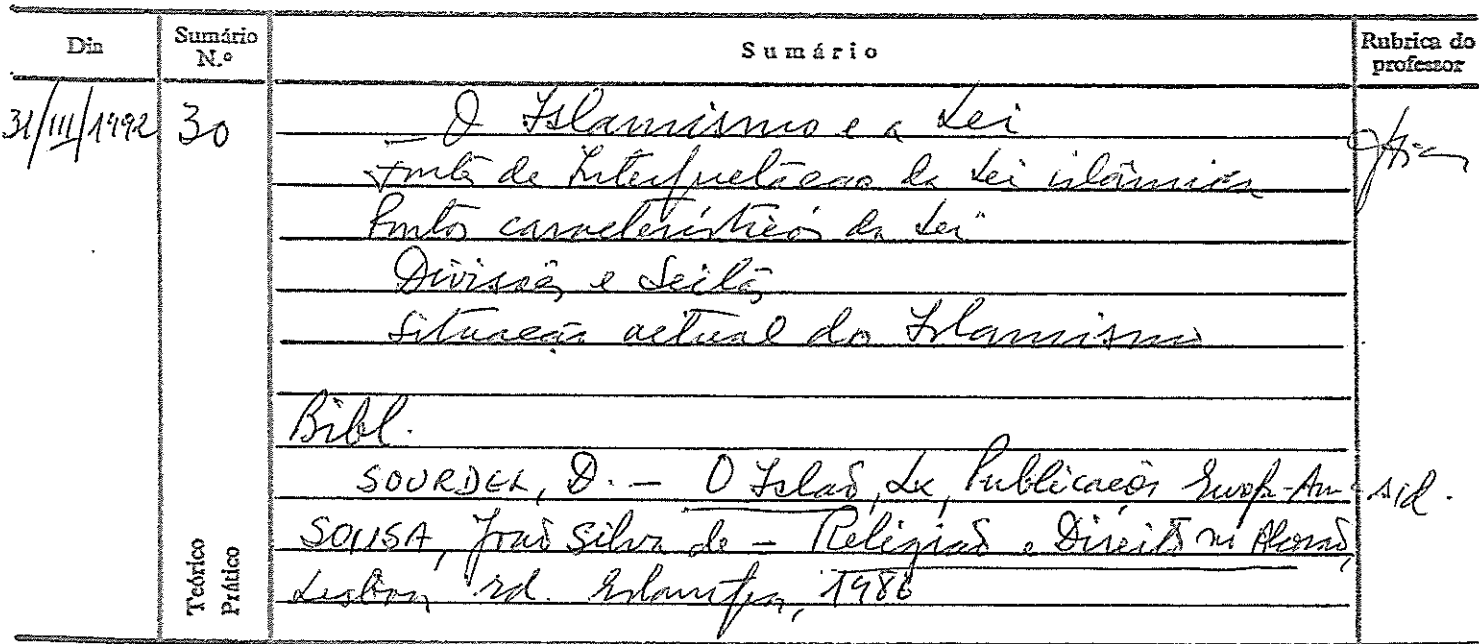 Dia Sumário N.º Sumário Rubrica do professor
31/III/1992 30 - O Islamismo e a Lei
Fontes de Interpretação da Lei islâmica
Pontos característicos da Lei
Divisões e Seitas
Situação actual do Islamismo
Bibl.
SOURDEL, D. - O Islão, Lx, Publicações Europ-Am - s/d.
SOUSA, João Silva de - Religião e Direito no Alcorão,
Lisboa, ed. Estampa, 1986
Teórico
Prático